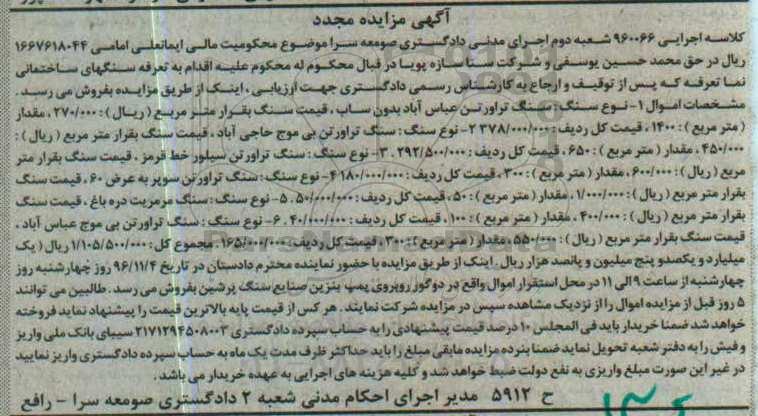 آگهی مزایده مجدد
کلاسه اجرایی ۹۶۰۰۶۶ شعبه دوم اجرای مدنی دادگستری صومعه سرا موضوع محکومیت مالی ایمانعلی امامی ۱۶۶۷۶۱۸۰۴۴
ریال در حق محمد حسین یوسفی و شرکت سنا سازه پویا در قبال محکوم له محکوم علیه اقدام به تعرفه سنگهای ساختمانی
نما تعرفه که پس از توقیف و ارجاع به کارشناس رسمی دادگستری جهت ارزیابی ، اینک از طریق مزایده بفروش می رسد .
مشخصات اموال ۱- نوع سنگ : سنگ تراورتن عباس آباد بدون ساب ، قیمت سنگ بقرار متر مربع ( ریال ) : ۲۷۰/۰۰۰ ، مقدار
( متر مربع ) : ۱۴۰۰ ، قیمت کل ردیف : ۳۷۸/۰۰۰/۰۰۰ ۲- نوع سنگ : سنگ تراورتن بی موج حاجی آباد ، قیمت سنگ بقرار متر مربع ( ریال ) :
۴۵۰/۰۰۰ ، مقدار ( متر مربع ) : ۶۵۰ ، قیمت کل ردیف : ۲۹۲/۵۰۰/۰۰۰ . ۳- نوع سنگ : سنگ تراورتن سیلور خط قرمز ، قیمت سنگ بقرار متر
مربع ( ریال ) : ۶۰۰/۰۰۰ ، مقدار ( متر مربع ) : ۳۰۰ ، قیمت کل ردیف : ۱۸۰/۰۰۰/۰۰۰ ۴- نوع سنگ : سنگ تراورتن سوپر به عرض ۶۰ ، قیمت سنگ
بقرار متر مربع ( ریال ) : ۱/۰۰۰/۰۰۰ ، مقدار ( متر مربع ) : ۵۰ ، قیمت کل ردیف : ۵۰/۰۰۰/۰۰۰ . ۵- نوع سنگ : سنگ مرمریت دره باغ ، قیمت سنگ
بقرار متر مربع ( ریال ) : ۴۰۰/۰۰۰ ، مقدار ( متر مربع ) : ۱۰۰ ، قیمت کل ردیف : ۴۰/۰۰۰/۰۰۰ . ۶- نوع سنگ : سنگ تراورتن بی موج عباس آباد ،
قیمت سنگ بقرار متر مربع ( ریال ) : ۵۵۰/۰۰۰ ، مقدار ( متر مربع ) : ۳۰۰ ، قیمت کل ردیف : ۱۶۵/۰۰۰/۰۰۰ ، مجموع کل : ۱/۱۰۵/۵۰۰/۰۰۰ ریال ( یک
میلیارد و یکصد و پنج میلیون و پانصد هزار ریال . اینک از طریق مزایده با حضور نماینده محترم دادستان در تاریخ ۹۶/۱۱/۴ روز چهارشنبه روز
چهارشنبه از ساعت ۹ الی ۱۱ در محل استقرار اموال واقع در دوگور روبروی پمپ بنزین صنایع سنگ پرشین بفروش می رسد . طالبین می توانند
۵ روز قبل از مزایده اموال را از نزدیک مشاهده سپس در مزایده شرکت نمایند . هر کس از قیمت پایه بالاترین قیمت را پیشنهاد نماید فروخته
خواهد شد ضمنا خریدار باید فی المجلس ۱۰ درصد قیمت پیشنهادی را به حساب سپرده دادگستری ۲۱۷۱۲۹۴۵۰۸۰۰۳ سیبای بانک ملی واریز
و فیش را به دفتر شعبه تحویل نماید ضمنا برنده مزایده مابقی مبلغ را باید حداکثر ظرف مدت یک ماه به حساب سپرده دادگستری واریز نمایید
در غیر این صورت مبلغ واریزی به نفع دولت ضبط خواهد شد و کلیه هزینه های اجرایی به عهده خریدار می باشد .
ح ۵۹۱۲ مدیر اجرای احکام مدنی شعبه ۲ دادگستری صومعه سرا - رافع